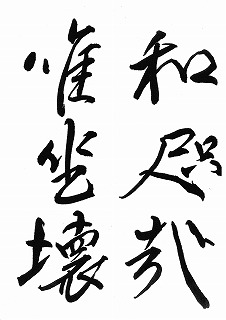 和咫哉
唯坐壊